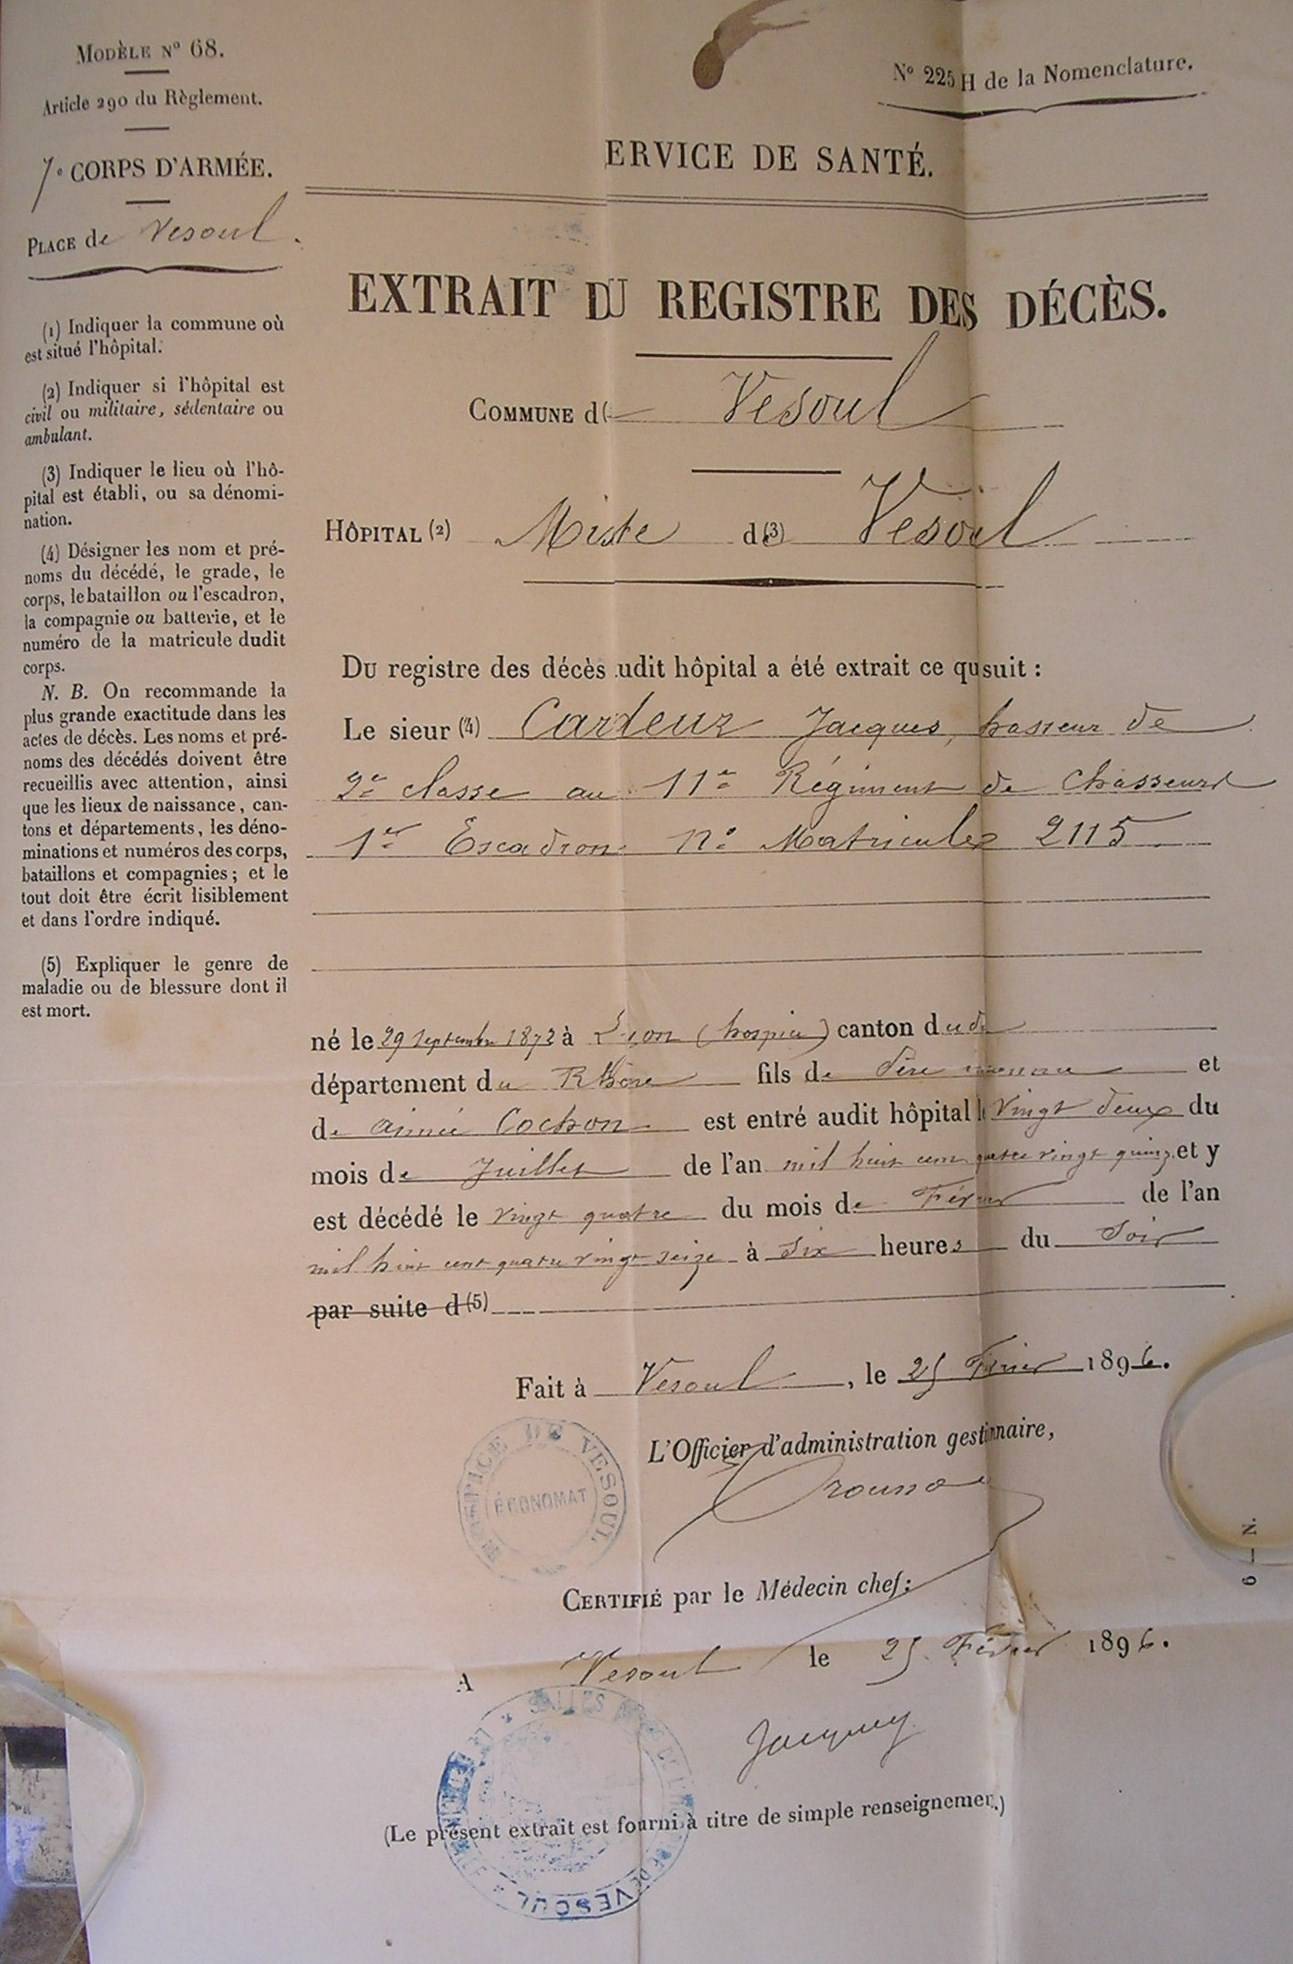 MODÈLE N° 68.
Article 290 du Règlement.
7e CORPS D'ARMÉE.
PLACE de Vesoul.
(1) Indiquer la commune où
est situé l'hôpital.
(2) Indiquer si l'hôpital est
civil ou militaire, sédentaire ou
ambulant.
(3) Indiquer le lieu où l'hô-
pital est établi, ou sa dénomi-
nation.
(4) Désigner les nom et pré-
noms du décédé, le grade, le
corps, le bataillon ou l'escadron,
la compagnie ou batterie, et le
numéro de la matricule dudit
corps.
N. B. On recommande la
plus grande exactitude dans les
actes de décès. Les noms et pré-
noms des décédés doivent être
recueillis avec attention, ainsi
que les lieux de naissance, can-
tons et départements, les déno-
minations et numéros des corps,
bataillons et compagnies; et le
tout doit être écrit lisiblement
et dans l'ordre indiqué.
(5) Expliquer le genre de
maladie ou de blessure dont il
est mort.
N° 225 H de la Nomenclature.
ERVICE DE SANTÉ.
EXTRAIT DU REGISTRE DES DÉCÈS.
COMMUNE d( Vesoul
HÔPITAL (2) Mixte d(3) Vesoul
Du registre des décès udit hôpital a été extrait ce qu suit :
Le sieur (4) Cardeur Jacques, hasseur de
2e classe au 11e Régiment de Chasseurs
1er Escadron N° Matricule 2115
né le 29 septembre 1872 à Lyon (hospice) canton dudit
département du Rhône fils de Père inconnu et
de aimée Cochon est entré audit hôpital l vingt deux du
mois de Juillet de l'an mil huit cent quatre vingt quinze et y
est décédé le vingt quatre du mois de Février de l'an
mil huit cent quatre vingt seize à six heures du soir
par suite d(5)
Fait à Vesoul, le 25 Février 1896.
L'Officier d'administration gestionnaire,
HOSPICE DE VESOUL
ÉCONOMAT
CERTIFIÉ par le Médecin chef:
A Vesoul le 25 Février 1896.
Jacquey
SALLES
VESOUL
(Le présent extrait est fourni à titre de simple renseignemen.)
6 — N.